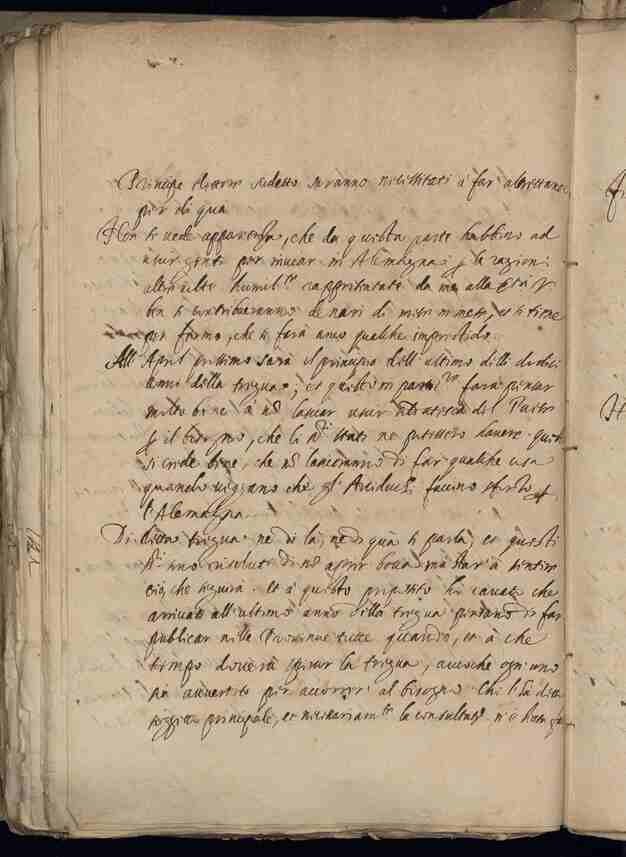 Principe d'Oranges sudetto saranno necessitati à far altretanto
per di qua
Non si vede apparenza, che da questa parte habbino ad
uscir genti per inviar in Alemagna per le ragioni
altre volte humil.te rappresentate da me alla Ser.tà V.
ben si contribueranno denari di mese in mese, et si tiene
per fermo, che si farà anco qualche imprestido.
All' April prossimo sarà il principio dell' ultimo delli dodeci
anni della tregua, et questo in parti.re farà pensar
molto bene à non lasciar uscir del Paese
per il bisogno, che li Stati ne potessero havere.
si crede bene, che non lascieranno di far qualche cosa
quando vegano che gl' Arciduchi faccino sforzo per
l'Alemagna.
Di detta tregua ne di là, ne di quà si parla, et questi
sono risoluti di non aprir bocca ma star à sentir
ciò, che seguirà. et à questo proposito hò cavato che
arrivati all'ultimo anno della tregua pensano di far
publicar nelle Provincie tutte quando, et à che
tempo doverà spirar la tregua, acciochè ogn'uno
sia avvertito per accorrer al bisogno. Chi l'hà detto
soggetto principale, et necessariam.te la consulta